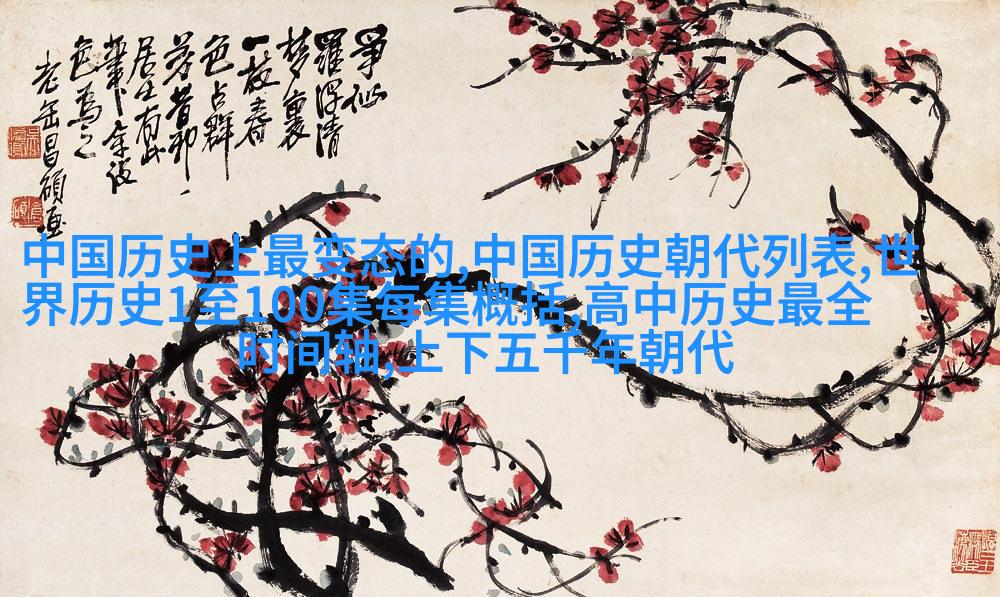 爭似
羅浮清
梦裏
一枝春
色占群
芳昔
居士有此
色為之
老缶昌碩畫
中国历史上最变态的,中国历史朝代列表,世
界历史1至100集每集概括,高中历史最全
时间轴,上下五千年朝代